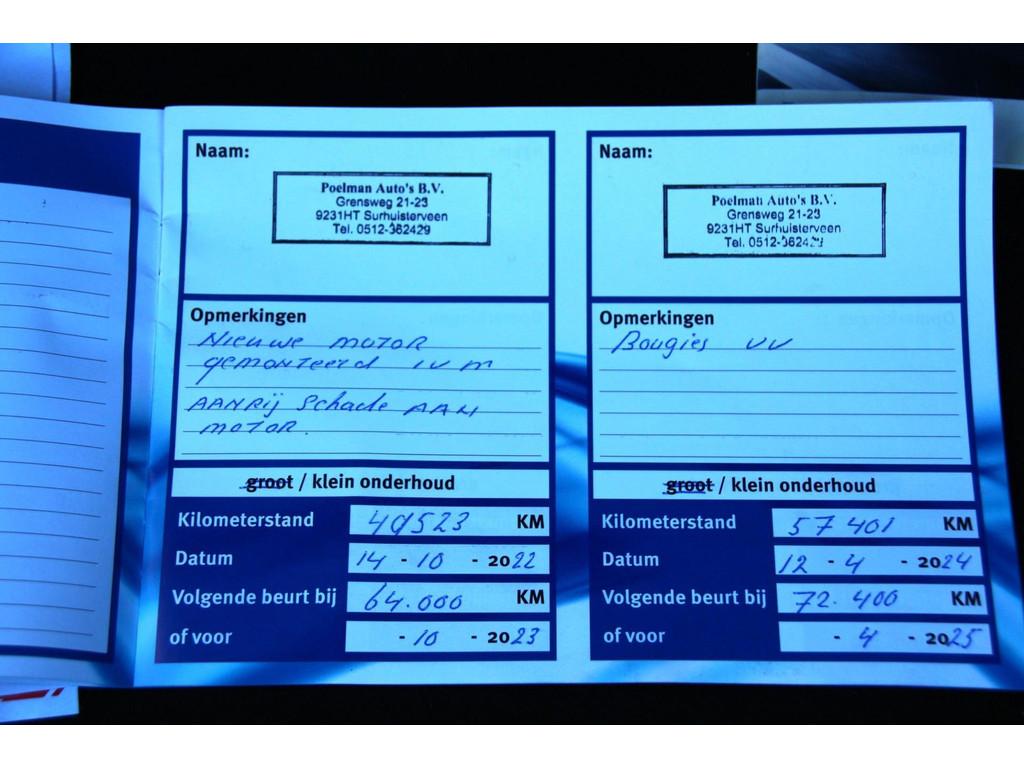 Naam:
Poelman Auto's B.V.
Grensweg 21-23
9231HT Surhuisterveen
Tel. 0512-362429
Opmerkingen
Nieuwe motor
gemonteerd ivm
AANRIJ Schade AAN
motor.
groot / klein onderhoud
Kilometerstand 49523 KM
Datum 14 - 10 - 2022
Volgende beurt bij 64.000 KM
of voor - 10 - 2023
Naam:
Poelman Auto's B.V.
Grensweg 21-23
9231HT Surhuisterveen
Tel. 0512-3624
Opmerkingen
Bougies vv
groot / klein onderhoud
Kilometerstand 57 401 KM
Datum 12 - 4 - 2024
Volgende beurt bij 72.400 KM
of voor - 4 - 2025